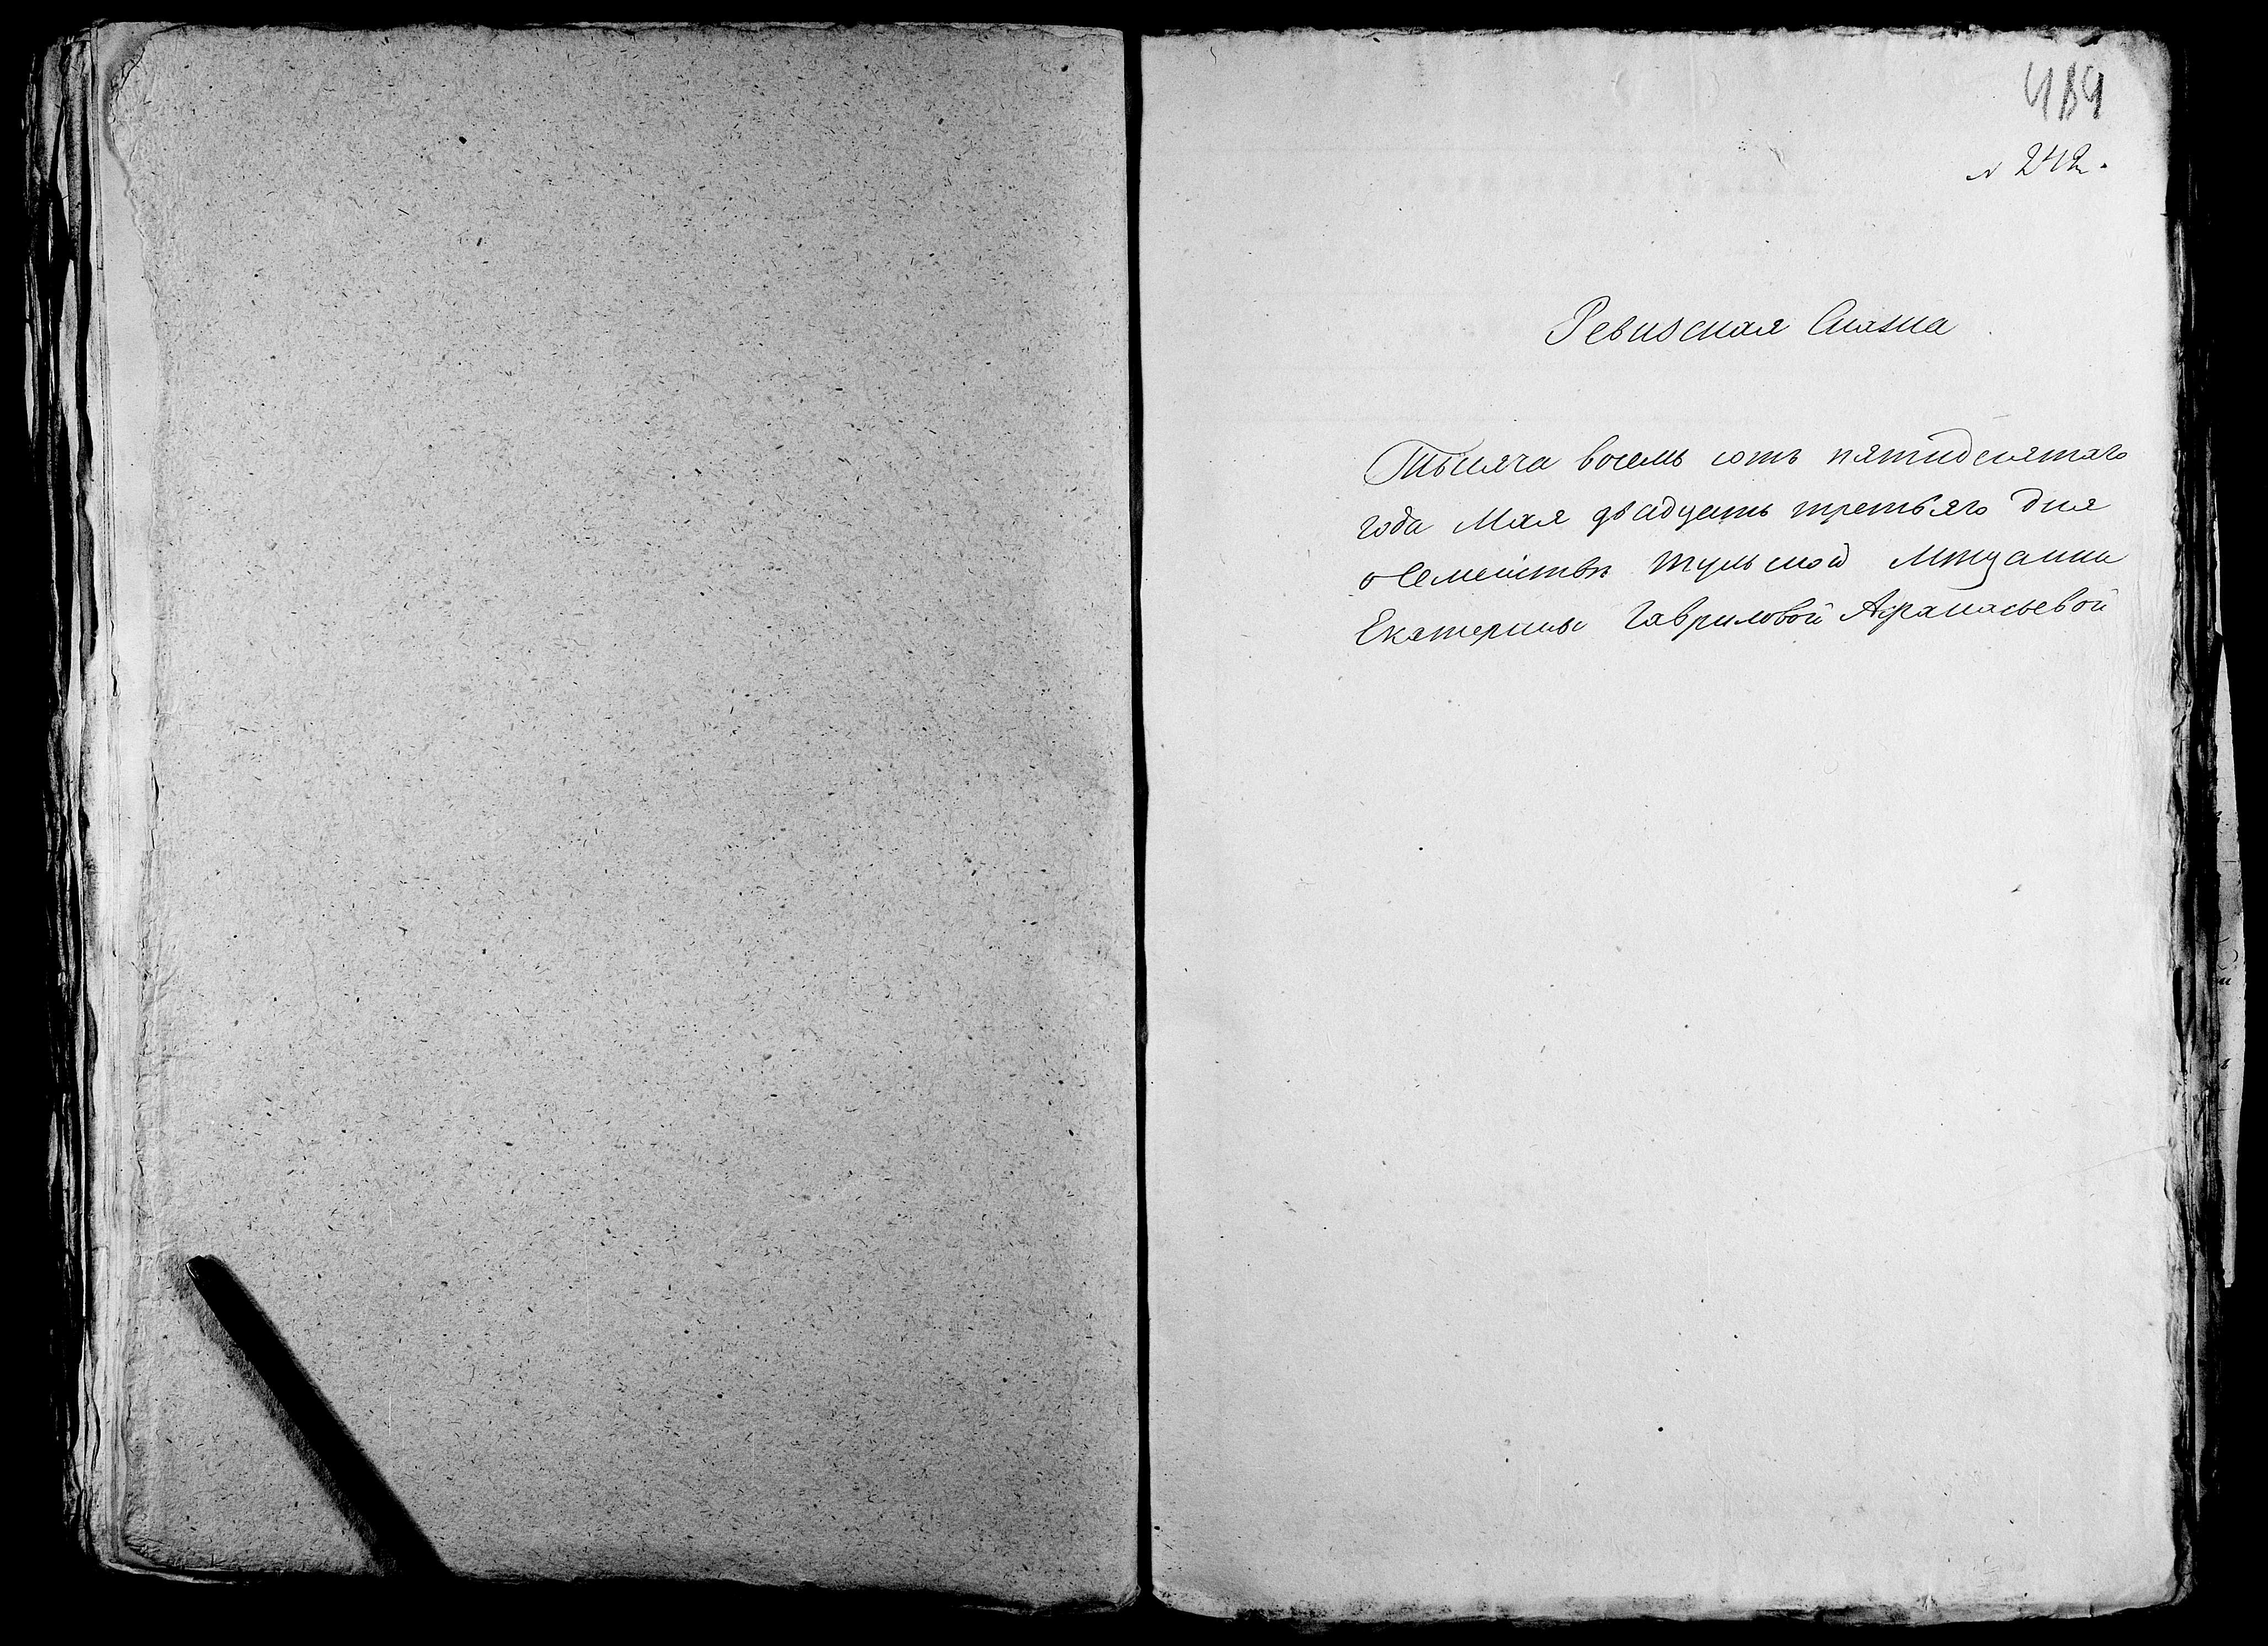 № 242.
Ревиская Сказка
Тысяча восемь сотъ пятидесятаго
года Мая двадцать третьяго дня
о Семействѣ тульской Мещанки
Екатерины Гавриловой Афанасьевой